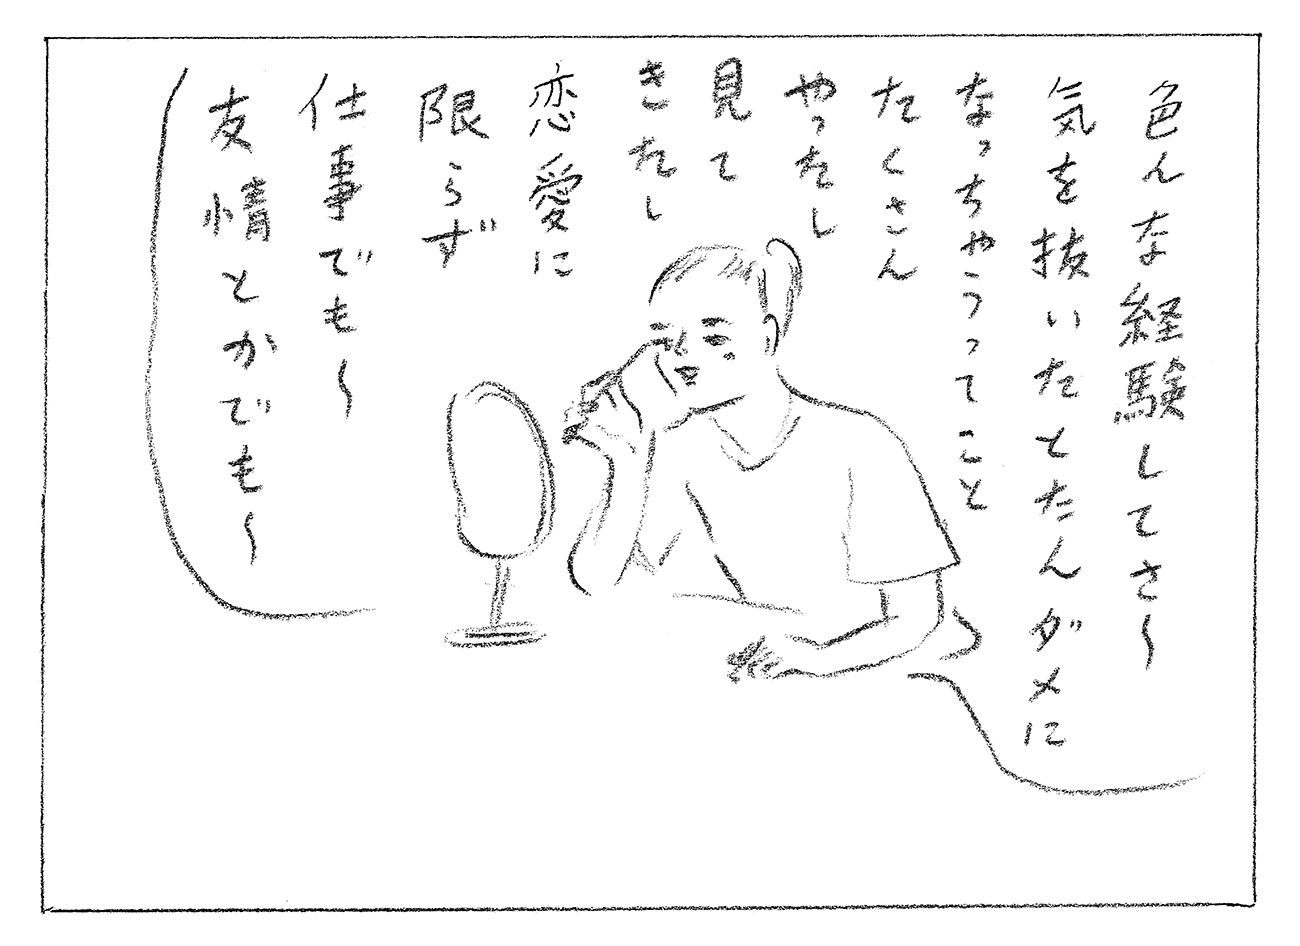 色んな経験してさ〜
気を抜いたとたんダメに
なっちゃうってこと
たくさん
やったし
見て
きたし
恋愛に
限らず
仕事でも〜
友情とかでも〜